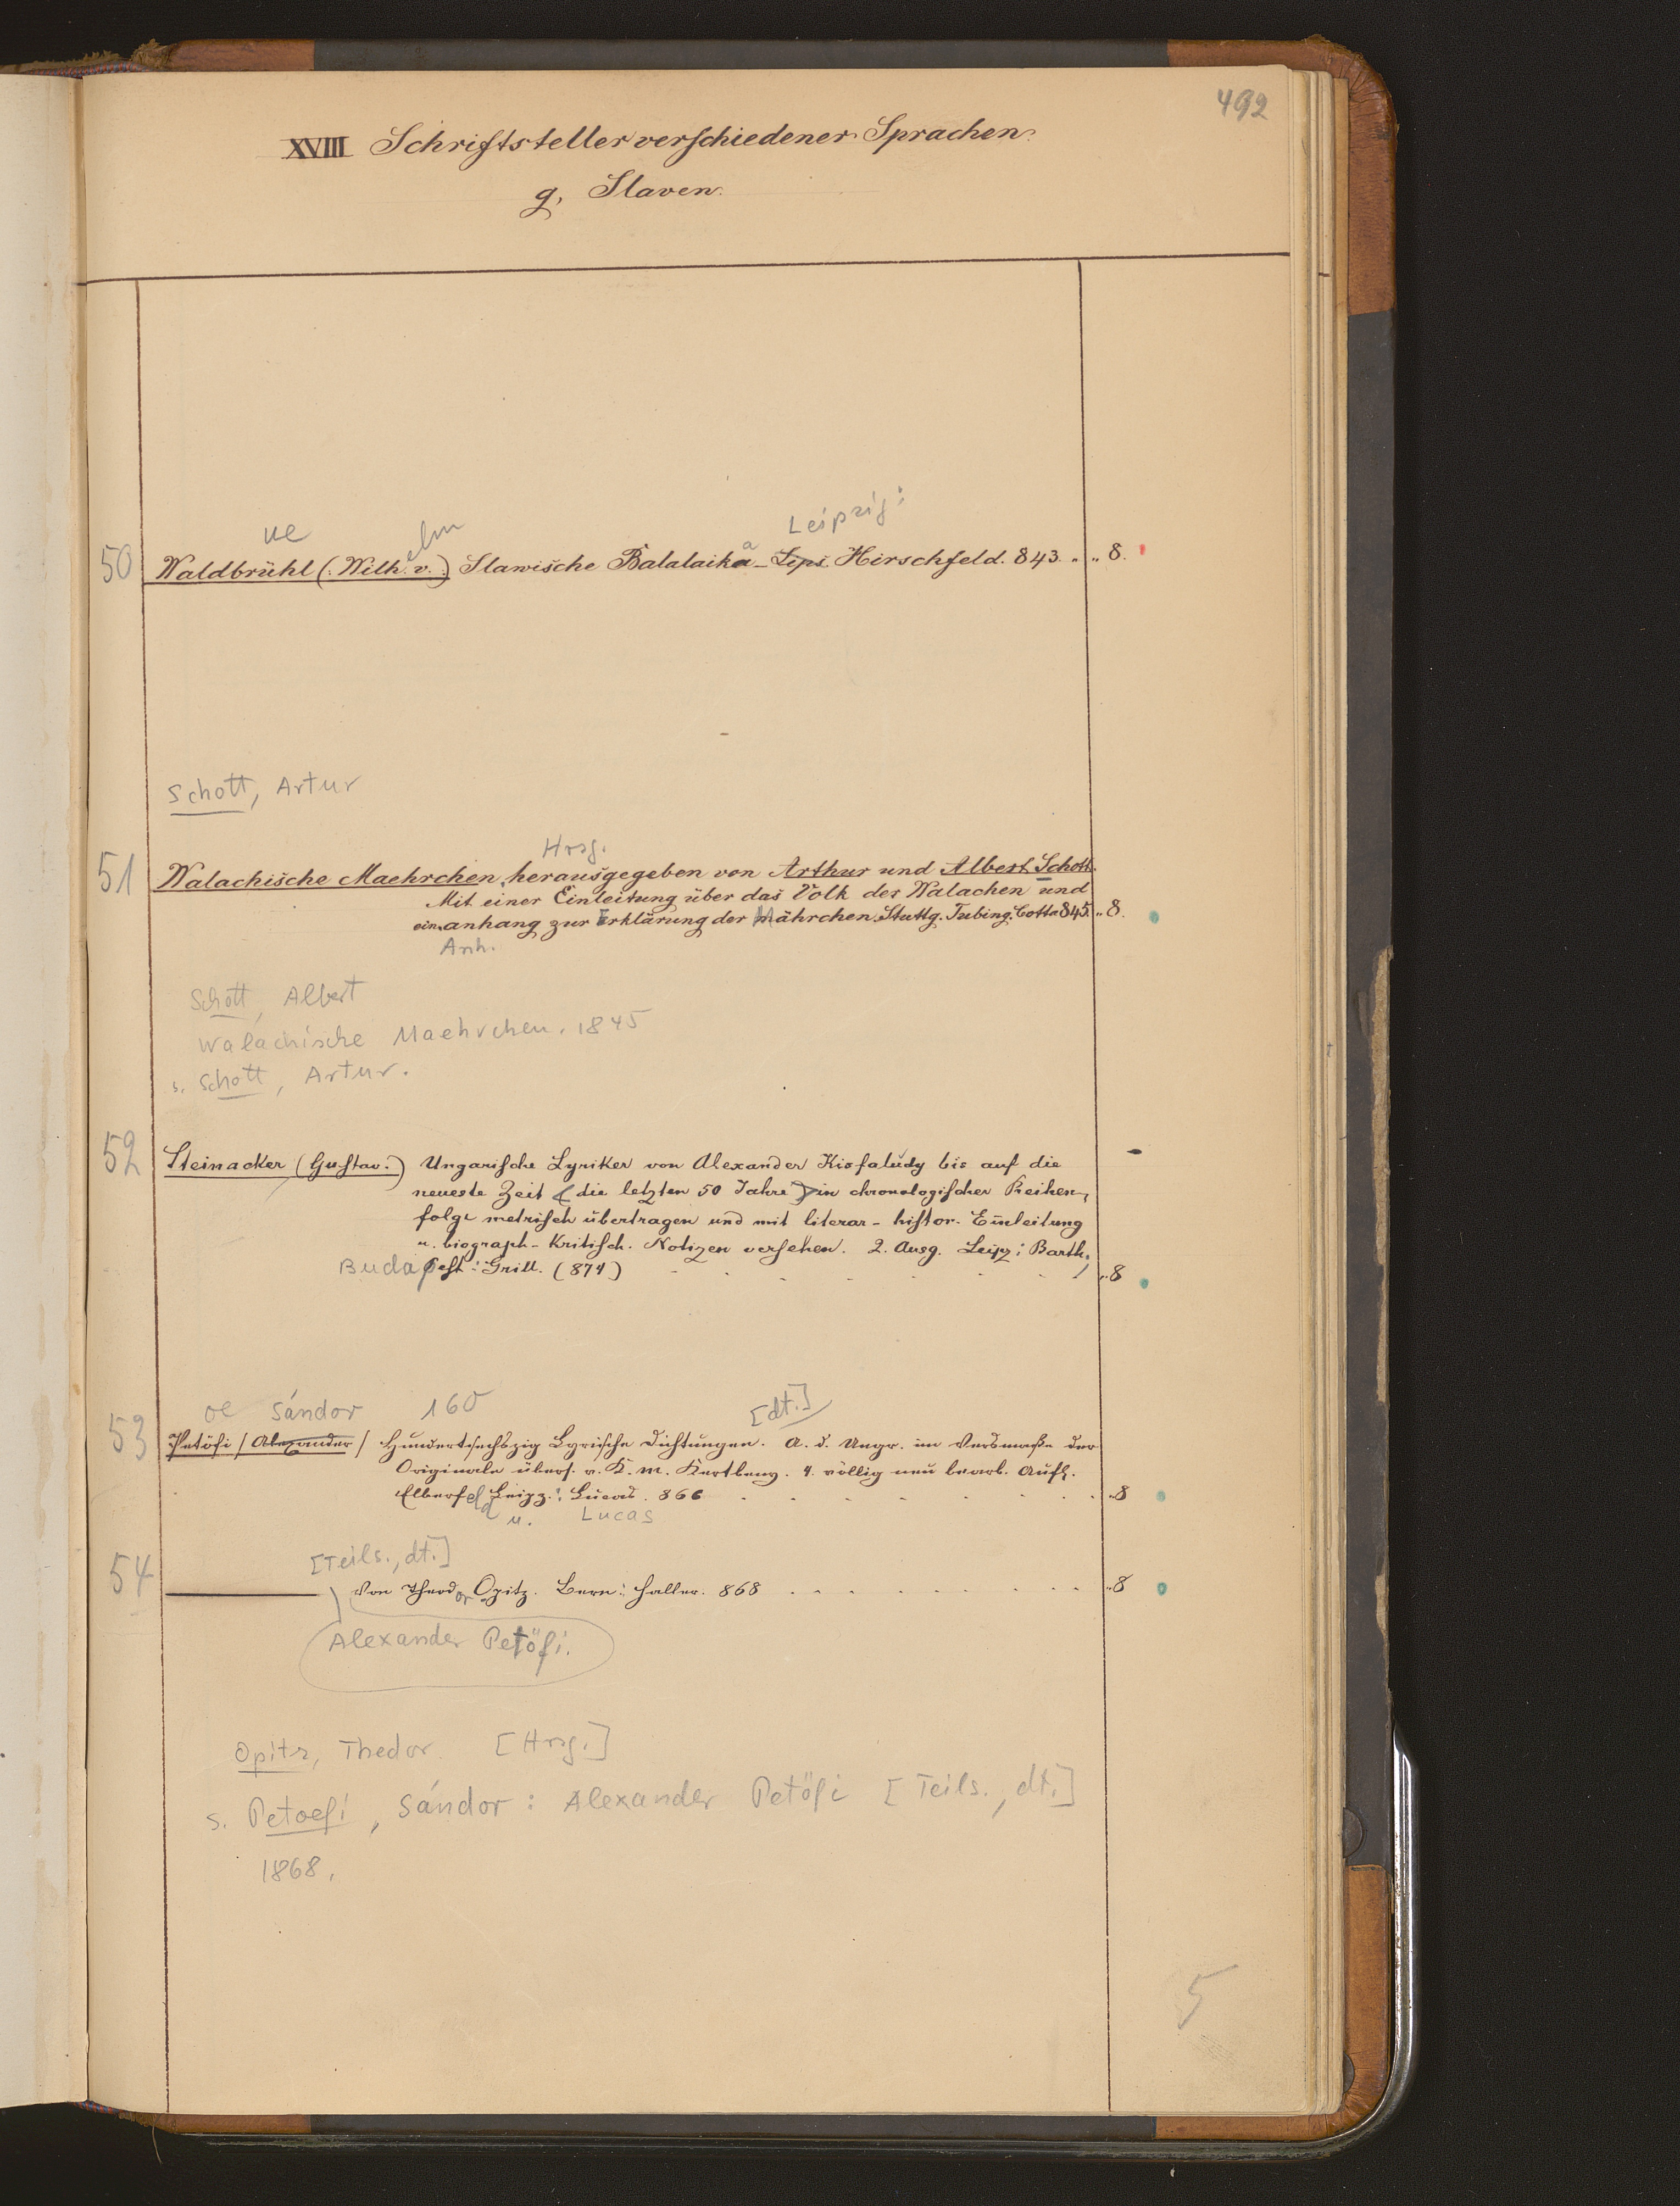 492
XVIII Schriftsteller verschiedener Sprachen.
g, Slaven.
ue elm Leipzig:
50 Waldbrühl (: Wilh. v. :) Slawische Balalaika a – Lips. Hirschfeld. 843. „ „ 8.
Schott, Artur
Hrsg.
51 Walachische Maehrchen, herausgegeben von Arthur und Albert Schott.
Mit einer Einleitung über das Volk der Walachen und
ein. anhang zur Erklärung der Mährchen. Stuttg. Tubing. Cotta 845. „ 8.
Anh.
Schott, Albert
Walachische Maehrchen. 1845
s. Schott, Artur.
52 Steinacker (Gustav.) Ungarische Lyriker von Alexander Kisfaludy bis auf die
neueste Zeit (die letzten 50 Jahre) in chronologischer Reihen-
folge metrisch übertragen und mit literar-histor. Einleitung
u. biograph-kritisch. Notizen versehen. 2. Ausg. Leipz: Barth,
Budapest: Grill. (874) „ 8
oe Sándor 160 [dt.]
53 Petöfi / Alexander / Hundertsechszig Lyrische Dichtungen. A. d. Ungr. im Versmaße der
Originale übers. v. K. M. Kertbeny. 4. völlig neu bearb. Aufl.
Elberfeld Leipz.: Lucas. 866 „ 8
u. Lucas
[Teils., dt.]
54 Von Theodor Opitz. Bern: Haller. 868 „ 8
Alexander Petöfi.
Opitz, Thedor [Hrsg.]
s. Petoefi, Sándor: Alexander Petöfi [Teils., dt.]
1868.
5